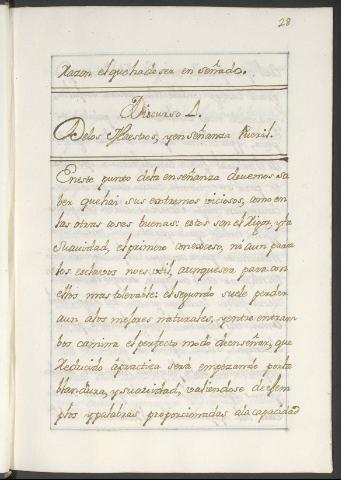 28
Razon el que ha de ser enseñado.
Discurso 1.
Delos Maestros, y enseñanza Pueril.
Eneste punto dela enseñanza devemos sa
ber que hai sus extremos viciosos, como en
las otras cosas buenas: estos son el Rigor, y la
Suavidad, el primero con exceso, ni aun para
los esclavos noes util, aunque sea para con
ellos mas tolerable: el segundo suele perder
aun alos mejores naturales, y entre entram
bos camina el perfecto modo de enseñar, que
Reducido apractica será empezando porla
blandura, y suavidad, valiendose de exem
plos y palabras proporcionadas ala capacidad